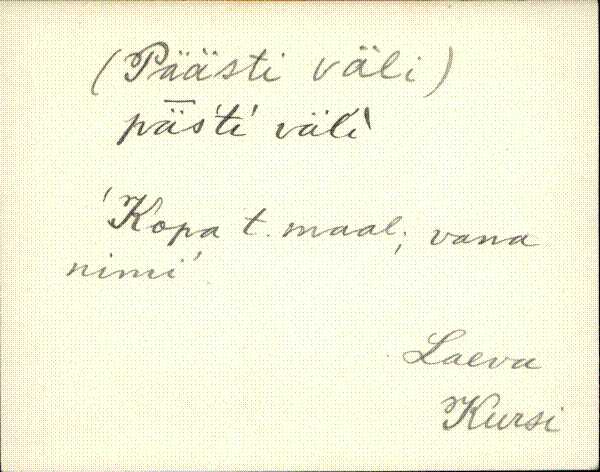 (Päästi väli)
pǟs't'i väl̀i
'Kopa t. maal; vana
nimi'
Laeva
Kursi